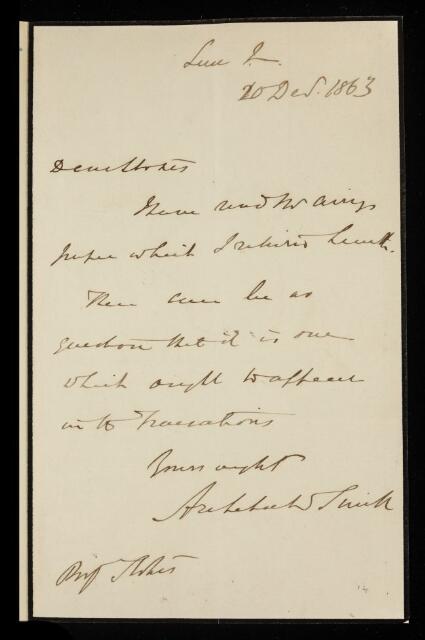 20 Dec. 1863
Dear Stokes
I have read Mr Airy's
paper which I return herewith.
There can be no
question that it is one
which ought to appear
in the Transactions
Yours
Archibald Smith
Prof Stokes